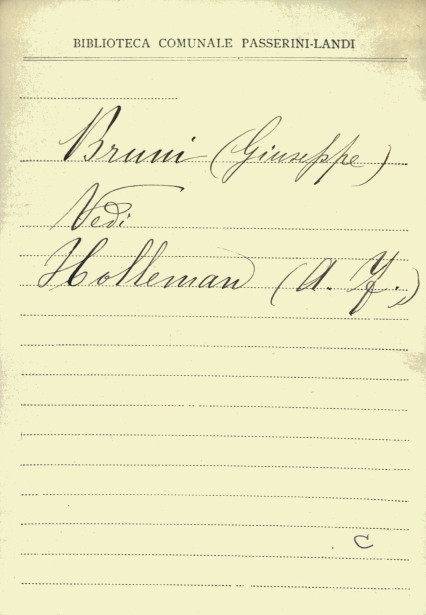 BIBLIOTECA COMUNALE PASSERINI-LANDI
Bruni (Giuseppe)
Vedi
Holleman (A. F.)
C